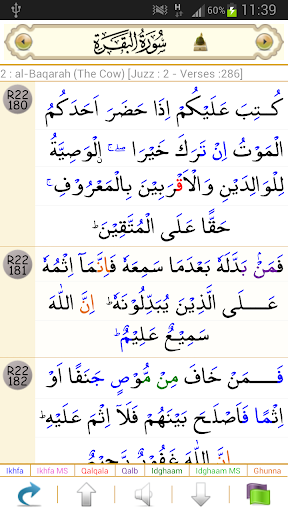 60% 11:39
سُورَةُ الْبَقَرَة
2 : al-Baqarah (The Cow) [Juzz : 2 - Verses :286]
R22
180
كُتِبَ عَلَيْكُمْ اِذَا حَضَرَ اَحَدَكُمُ
الْمَوْتُ اِنْ تَرَكَ خَيْرًا ۖۚ اِۨلْوَصِيَّةُ
لِلْوَالِدَيْنِ وَالْاَقْرَبِيْنَ بِالْمَعْرُوْفِۚ
حَقًّا عَلَى الْمُتَّقِيْنَ ؕ
R22
181
فَمَنْۢ بَدَّلَهٗ بَعْدَمَا سَمِعَهٗ فَاِنَّمَاۤ اِثْمُهٗ
عَلَى الَّذِيْنَ يُبَدِّلُوْنَهٗ ؕ اِنَّ اللّٰهَ
سَمِيْعٌ عَلِيْمٌ ؕ
R22
182
فَمَنْ خَافَ مِنْ مُّوْصٍ جَنَفًا اَوْ
اِثْمًا فَاَصْلَحَ بَيْنَهُمْ فَلَاۤ اِثْمَ عَلَيْهِ ؕ
اِنَّ اللّٰهَ غَفُوْرٌ رَّحِيْمٌ
Ikhfa Ikhfa MS Qalqala Qalb Idghaam Idghaam MS Ghunna